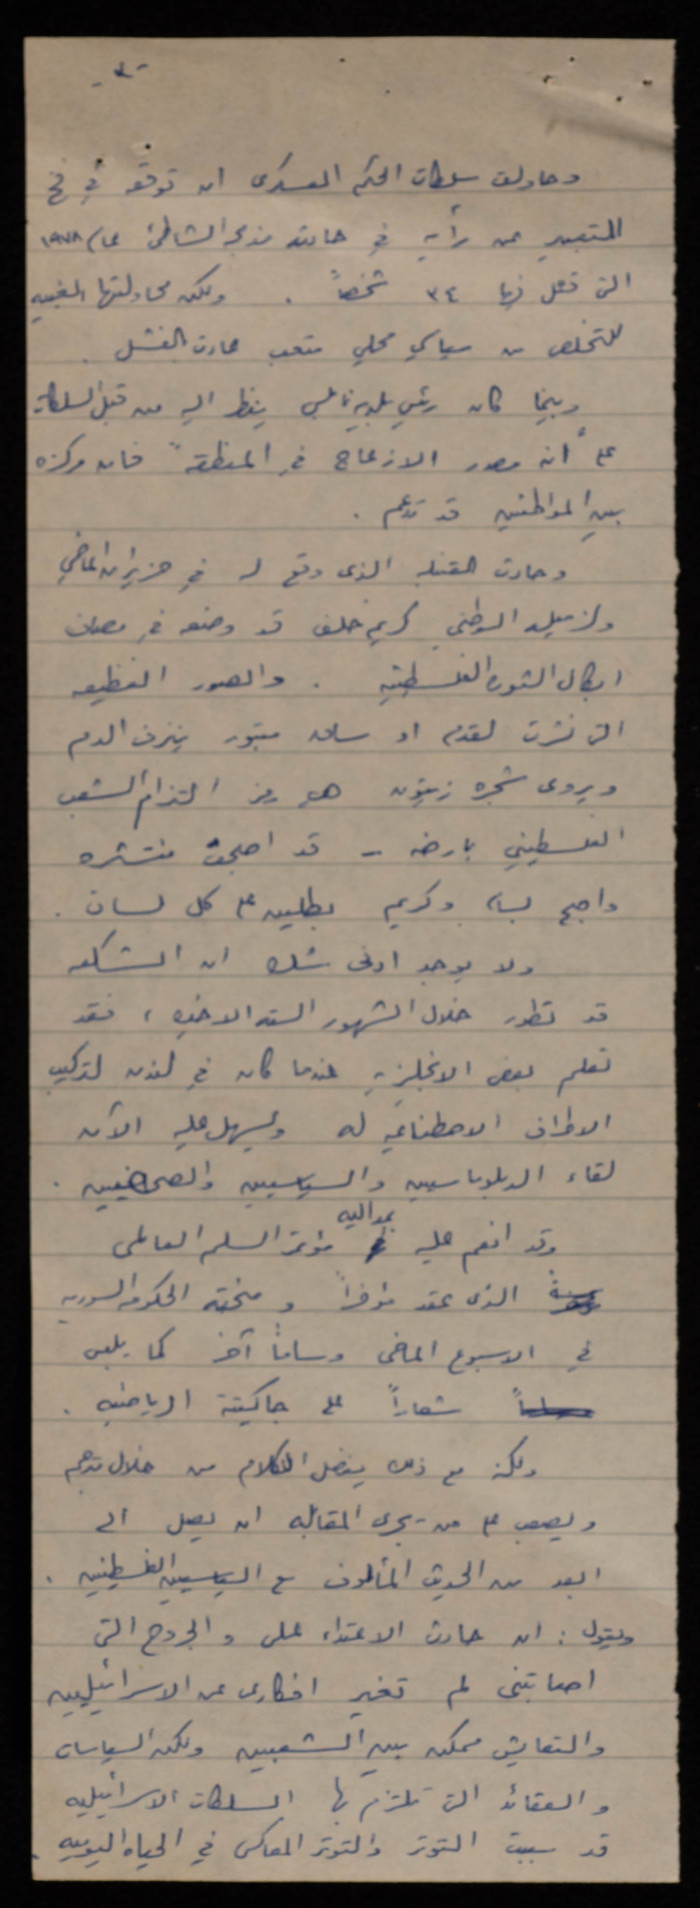 - ٣ -
وحاولت سلطات الحكم العسكرى ان توقعه في فخ
التعبير عن رأيه في حادثة نزع الشاطئ عام ١٩٧٨
التى قتل فيها ٣٤ شخصاً . ولكن محاولتها
للتخلص من سياسي محلي متعب عادت بالفشل .
وبينما كان رئيس بلدية نابلس ينظر اليه من قبل السلطات
على "أنه مصدر الازعاج في المنطقة" فان مركزه
بين المواطنين قد تدعم .
وحادث القنبلة الذى وقع له في حزيران الماضي
ولزميله الوطني كريم خلف قد وضعه في مصاف
ابطال الثورة الفلسطينية . والصور الفظيعه
التى نشرت لقدم او ساق مبتور ينزف الدم
ويروى شجرة زيتون هي رمز التزام الشعب
الفلسطيني بارضه - قد اصبحت منتشره
واصبح بسام وكريم بطلين على كل لسان .
ولا يوجد ادنى شك ان الشكعه
قد تطور خلال الشهور الستة الاخيره ، فقد
تعلم بعض الانجليزيه عندما كان في لندن لتركيب
الاطراف الاصطناعيه له ويسهل عليه الآن
لقاء الدبلوماسيين والسياسيين والصحافيين .
وقد انعم عليه بمداليه مؤتمر السلم العالمى
الذى عقد مؤخراً و منحته الحكومه السوريه
في الاسبوع الماضى وساماً آخر كما يلبس
شعاراً على جاكيتة الرياضيه .
ولكنه مع ذلك يفضل الكلام من خلال مترجم
ويصعب على من يجرى المقابله ان يصل الى
ابعد من الحديث المألوف مع السياسيين الفلسطينيين .
ويقول : ان حادث الاعتداء على و الجروح التى
اصابتنى لم تغير افكارى عن الاسرائيليين
والتعايش ممكن بين الشعبين ولكن السياسات
و العقائد التى تلتزم بها السلطات الاسرائيليه
قد سببت التوتر والتوتر المعاكس في الحياة اليوميه .